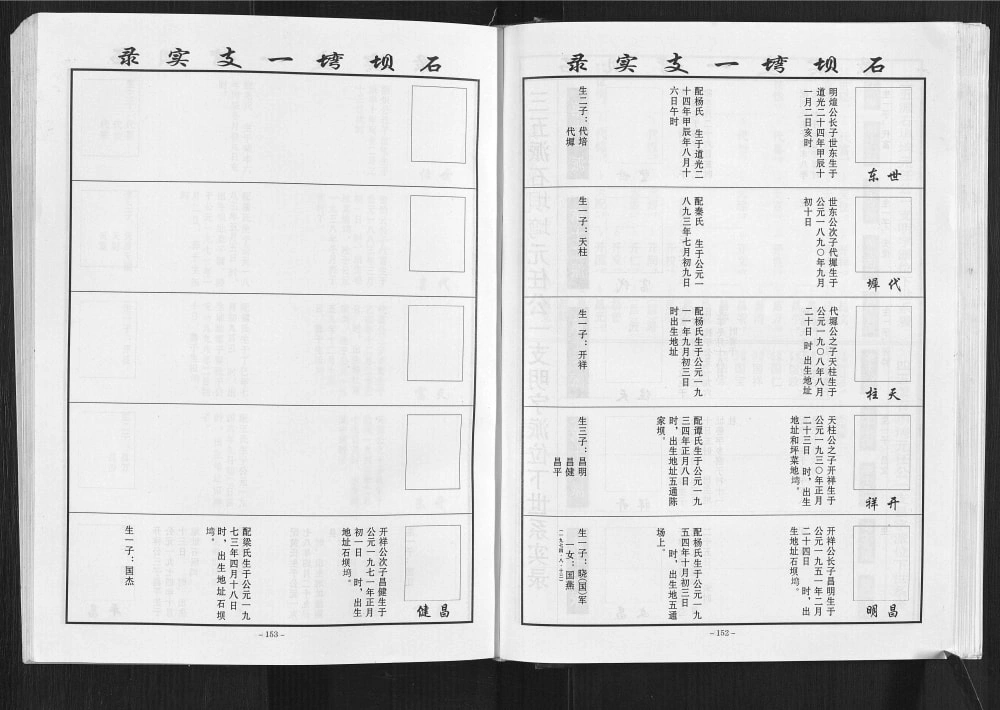 石坝塆一支实录
世东
明煊公长子世东生于
道光二十四年甲辰十
一月二日亥时
配杨氏 生于道光二
十四年甲辰年八月十
六日午时
生二子：代培
代墀
代墀
世东公次子代墀生于
公元一八九〇年九月
初十日
配秦氏 生于公元一
八九三年七月初九日
生一子：天柱
天柱
代墀公之子天柱生于
公元一九〇八年八月
二十日 时出生地址
配杨氏生于公元一九
一一年九月初三日
时出生地址
生一子：开祥
开祥
天柱公之子开祥生于
公元一九三〇年正月
二十三日 时，出生
地址和坪菜地塆。
配谭氏生于公元一九
三四年正月八日
时，出生地址五通陈
家坝。
生三子：昌明
昌健
昌平
昌明
开祥公长子昌明生于
公元一九五一年二月
二十四日 时，出
生地址石坝塆。
配杨氏生于公元一九
五四年十月初三日
时，出生地址五通
场上。
生一子：晓(国)军
一女：国燕
(一九七四、八、十三)
-152-
石坝塆一支实录
昌健
开祥公次子昌健生于
公元一九七一年正月
初一日 时，出生
地址石坝塆。
配梁氏生于公元一九
七三年四月十八日
时，出生地址石坝
塆。
生一子：国杰
-153-